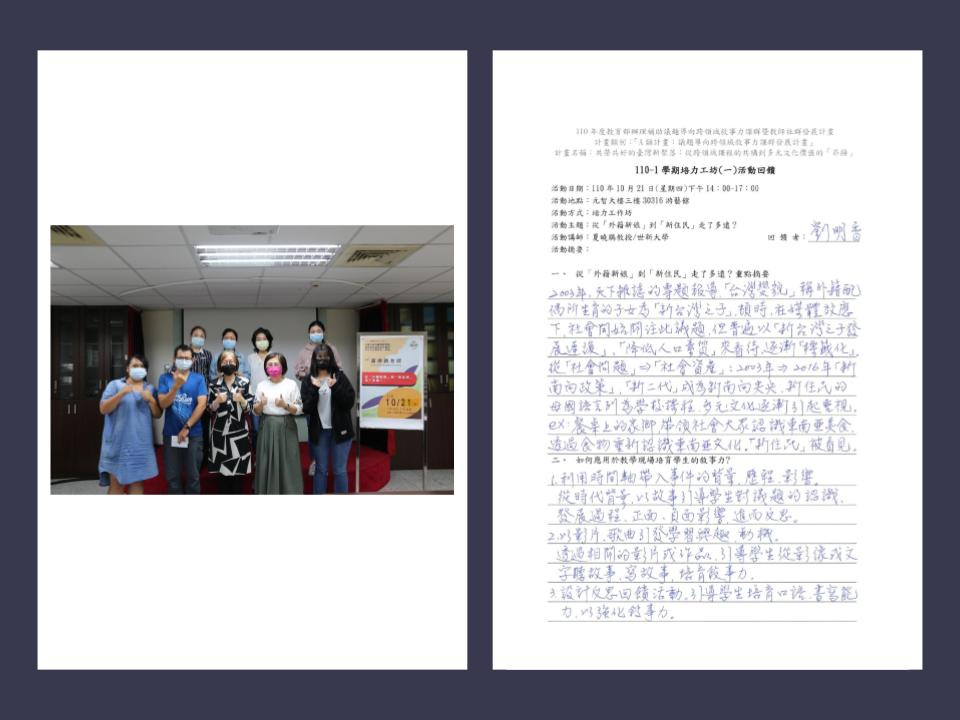 10/21
110 年度教育部辦理補助議題導向跨領域敘事力課群暨教師社群發展計畫
計畫類別：「A類計畫：議題導向跨領域敘事力課群發展計畫」
計畫名稱：共榮共好的臺灣新聚落：從跨領域課程的共構到多元文化價值的「昇揚」
110-1 學期培力工坊(一)活動回饋
活動日期：110 年 10 月 21 日(星期四)下午 14：00-17：00
活動地點：元智大樓三樓 30316 游藝館
活動方式：培力工作坊
活動主題：從「外籍新娘」到「新住民」走了多遠？
活動講師：夏曉鵑教授/世新大學
回 饋 者：劉明香
活動摘要：
一、 從「外籍新娘」到「新住民」走了多遠？重點摘要
2003年，天下雜誌的專題報導，「台灣變貌」稱外籍配
偶所生育的子女為「新台灣之子」，頓時，在媒體效應
下，社會開始關注此議題，但普遍以「新台灣之子發
展遲緩」、「降低人口素質」來看待，逐漸「標籤化」
從「社會問題」⇒「社會資產」：2003年⇒2016年「新
南向政策」，「新二代」成為新南向尖兵，新住民的
母國語言列為學校課程，多元文化逐漸引起重視。
ex：餐桌上的家鄉 帶領社會大眾認識東南亞美食，
透過食物重新認識東南亞文化，「新住民」被看見。
二、 如何應用於教學現場培育學生的敘事力？
1.利用時間軸帶入事件的背景、歷程、影響。
從時代背景，以故事引導學生對議題的認識、
發展過程、正面、負面影響，進而反思。
2.以影片、歌曲引發學習興趣、動機。
透過相關的影片或作品，引導學生從影像或文
字聽故事、寫故事，培育敘事力。
3.設計反思回饋活動，引導學生培育口語、書寫能
力，以強化敘事力。